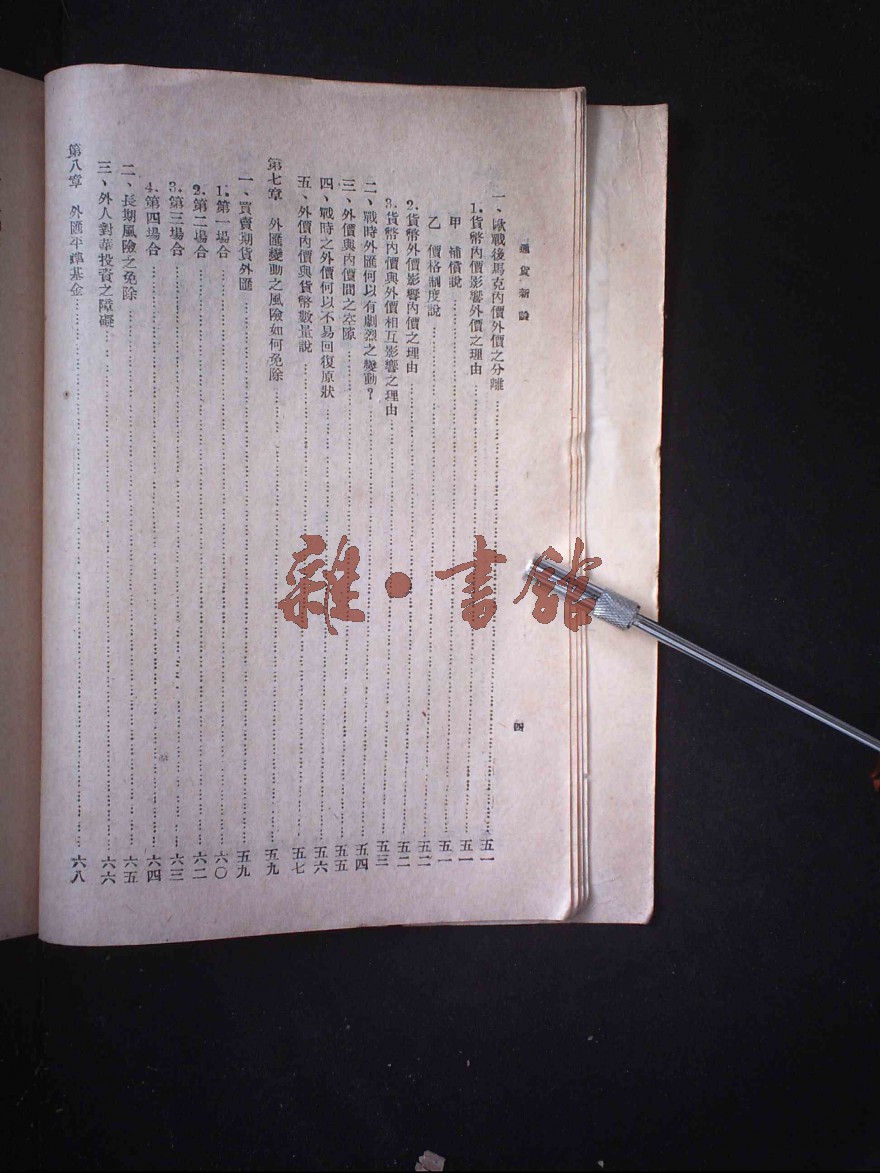 通貨新論
四
一、歐戰後馬克內價外價之分離……五一
1.貨幣內價影響外價之理由……五一
甲 補償說……五一
乙 價格制度說……五二
2.貨幣外價影響內價之理由……五二
3.貨幣內價與外價相互影響之理由……五三
二、戰時外匯何以有劇烈之變動？……五四
三、外價與內價間之空隙……五五
四、戰時之外價何以不易回復原狀……五六
五、外價內價與貨幣數量說……五七
第七章 外匯變動之風險如何免除……五九
一、買賣期貨外匯……五九
1.第一場合……六〇
2.第二場合……六二
3.第三場合……六三
4.第四場合……六四
二、長期風險之免除……六五
三、外人對華投資之障礙……六六
第八章 外匯平準基金……六八
雜·書館